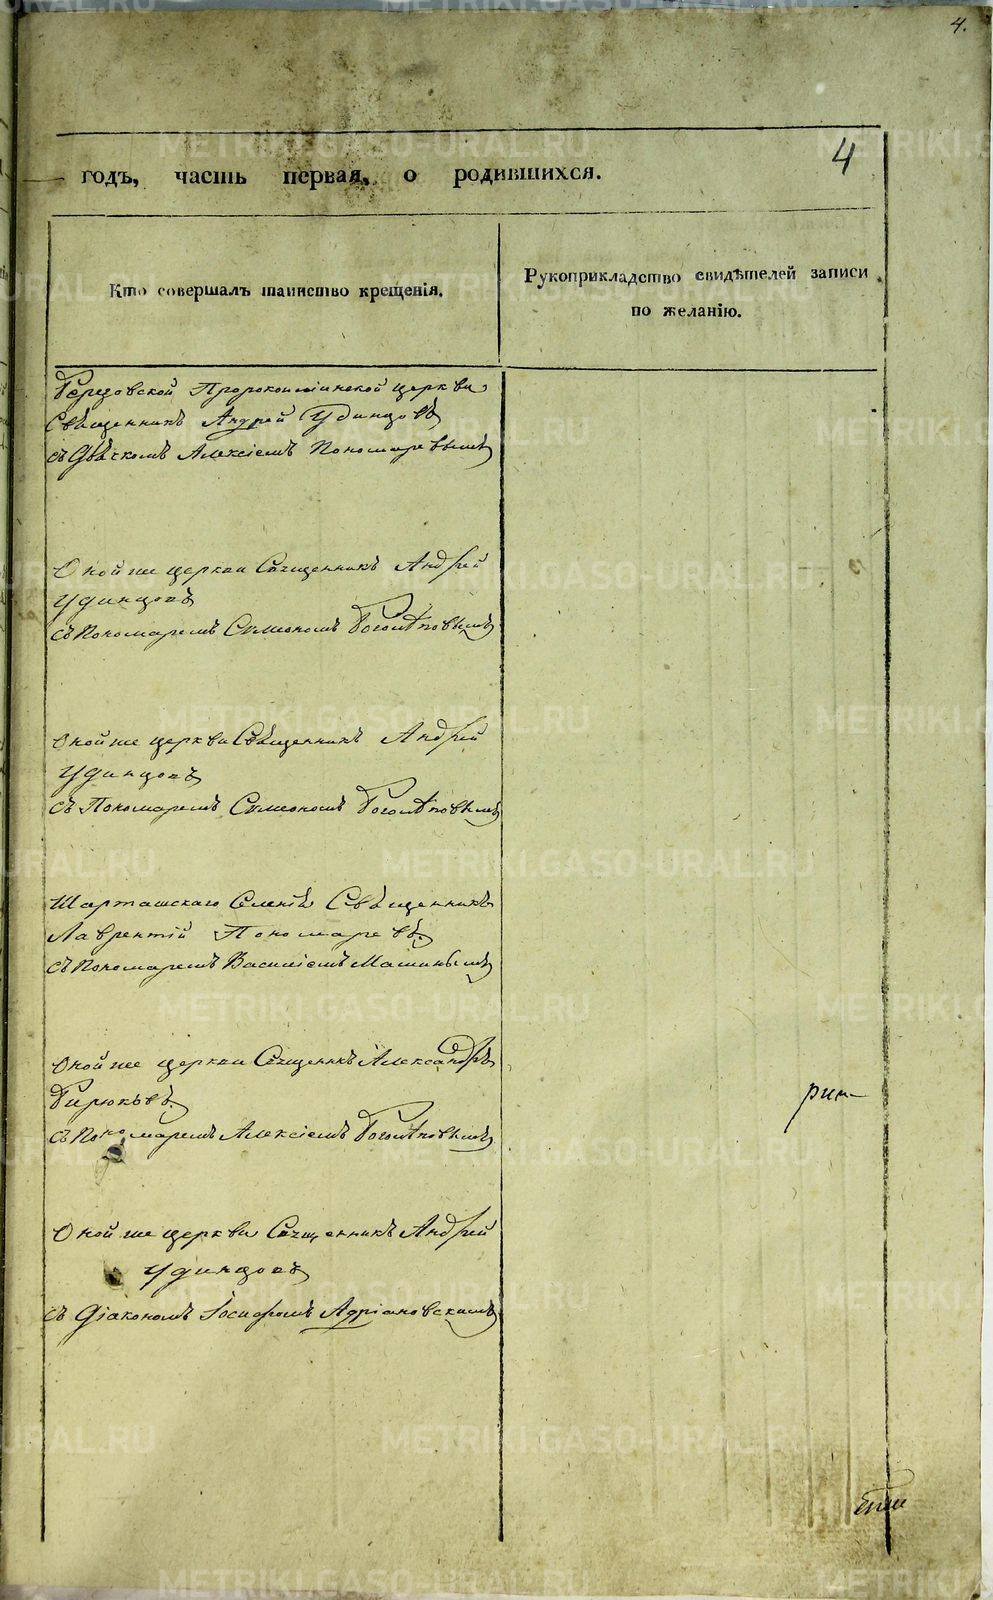 4.
4
годъ, часть первая, о родившихся.
Кто совершалъ таинство крещенія.
Рукоприкладство свидѣтелей записи
по желанію.
Березовской Пророкоильинской церкви
Священникъ Андрей Удинцовъ
съ Дьячкомъ Алексіемъ Пономаревымъ
Оной же церкви Священникъ Андрей
Удинцовъ
съ Пономаремъ Симеономъ Боголѣповымъ
Оной же церкви Священникъ Андрей
Удинцовъ
съ Пономаремъ Симеономъ Боголѣповымъ
Шарташскаго Селенія Священникъ
Лаврентій Пономаревъ
съ Пономаремъ Василіемъ Машинымъ
Оной же церкви Священникъ Александръ
Бирюковъ
съ Пономаремъ Алексіемъ Боголѣповымъ
Оной же церкви Священникъ Андрей
Удинцовъ
съ Діакономъ Іосифомъ Адріановскимъ
METRIKI.GASO-URAL.RU